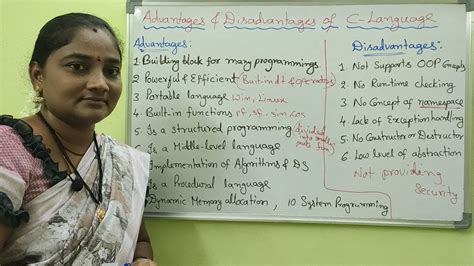 Advantages & Disadvantages of C-Language
Advantages:
1 Building block for many programmings
2 Powerful & Efficient Built-in dt & operators
3 Portable language Win, Linux
4 Built-in functions pf, sf, sin, cos
5 Is a structured programming divided into smaller parts
Is a Middle-level language
Implementation of Algorithms & DS
Is a Procedural language
Dynamic Memory allocation, 10 System Programming
Disadvantages:
1 Not Supports OOP Concepts
2 No Run-time checking
3 No Concept of namespace
4 Lack of Exception handling
5 No Constructor or Destructor
6 Low level of abstraction
Not providing
Security